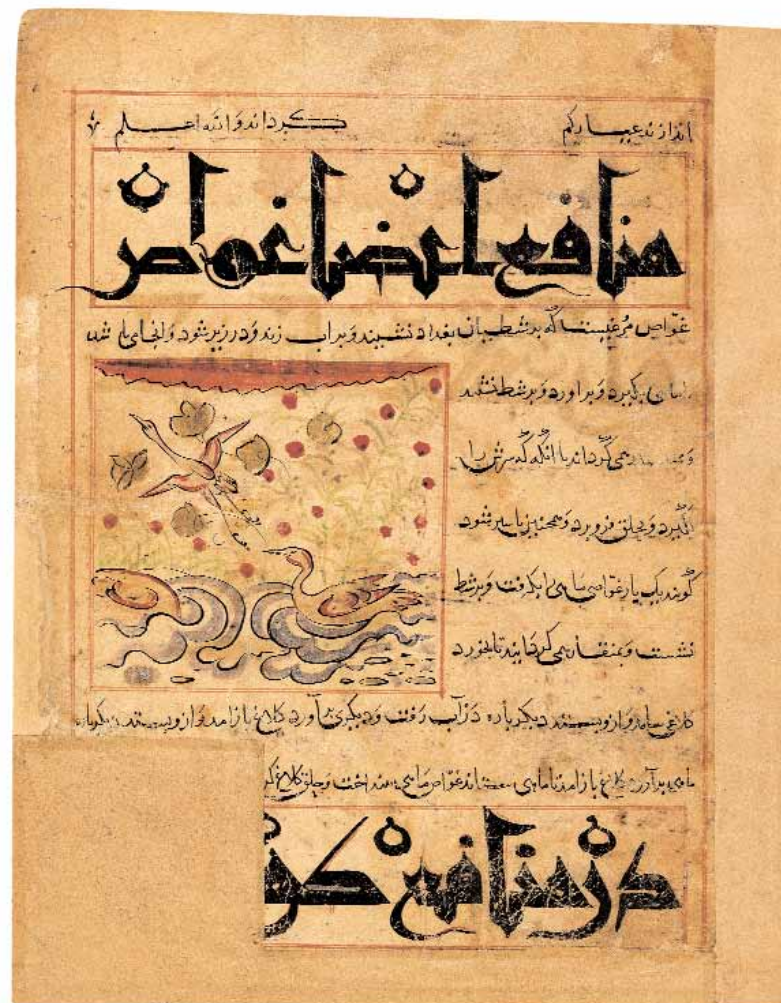 اندازند عیبا رکم کبرداند والله اعلم
منافع اعضا غواص
غواص مرغیست که بر شط بغداد نشیند و بر آب زند و در زیر شود و آنجا
ماهی بکیرد و برآورد و بر شط نشیند
همی کرداند تا انکه که سرش را
بکیرد و بحلق فرو برد و همچنین تا سیر شود
کویند یک بار غواصی ماهی بکرفت و بر شط
نشست و بمنقار همی کردانید تا بخورد
کلاغی بیامد و ازو بستد دیکر باره در آب رفت و دیکری برآورد کلاغ باز آمد و ازو بستد دیکرباره
ماهی برآورد کلاغ باز آمد تا ماهی بستاند غواص ماهی بینداخت و حلق کلاغ
در منافع